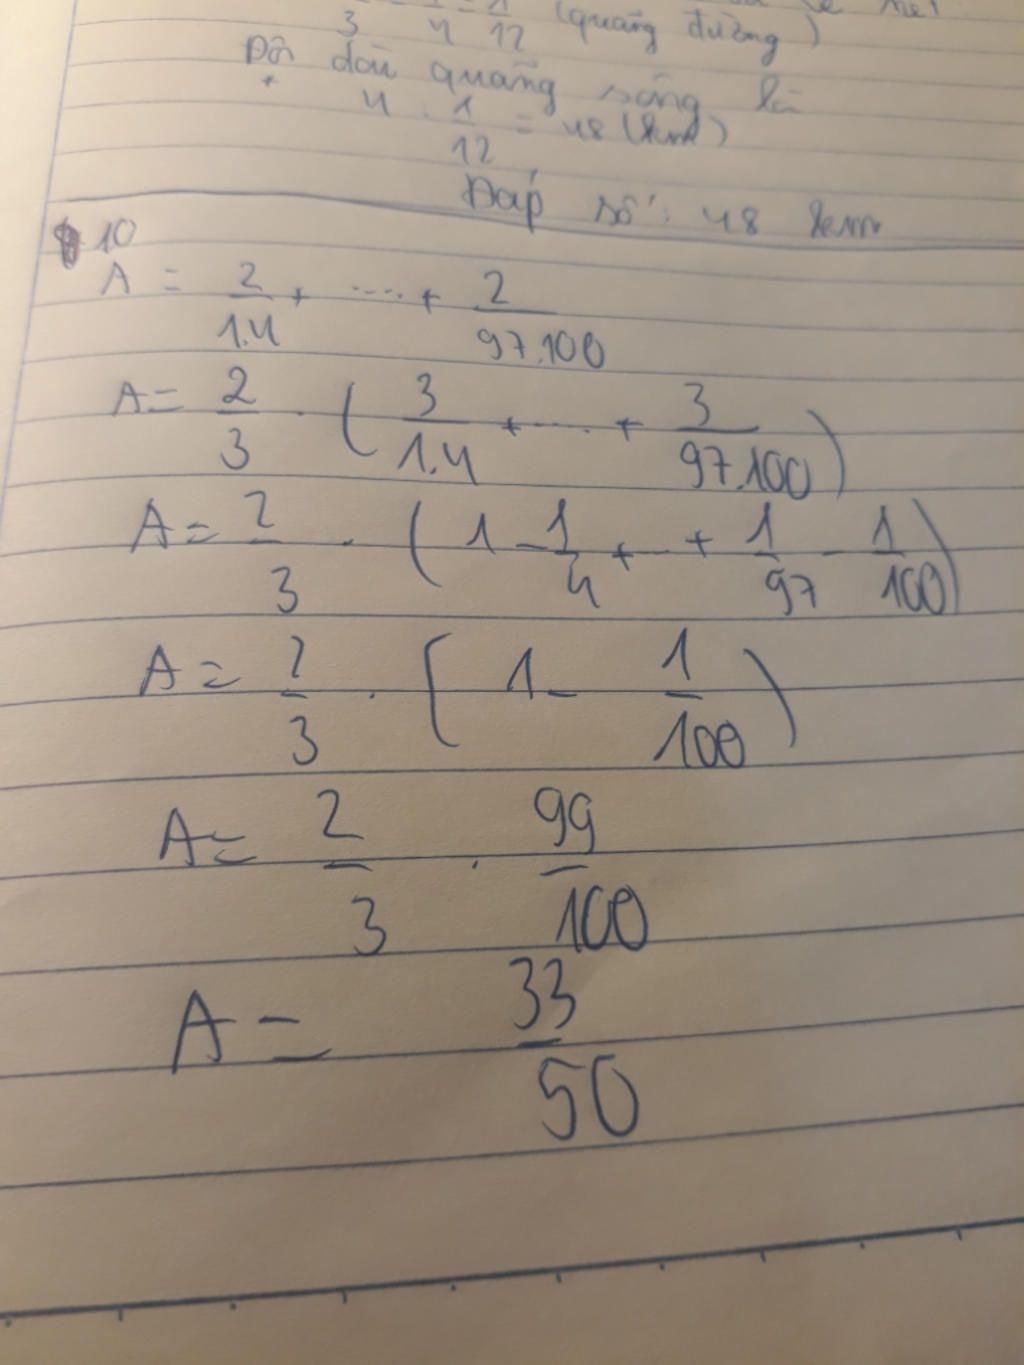 1/3 - 1/4 = 1/12 (quãng đường)
Độ dài quãng sông là
4 . 1/12 = 48 (km)
Đáp số: 48 km
10
A = 2/1.4 + ..... + 2/97.100
A = 2/3 . (3/1.4 + ..... + 3/97.100)
A = 2/3 . (1 - 1/4 + ... + 1/97 - 1/100)
A = 2/3 . (1 - 1/100)
A = 2/3 . 99/100
A = 33/50